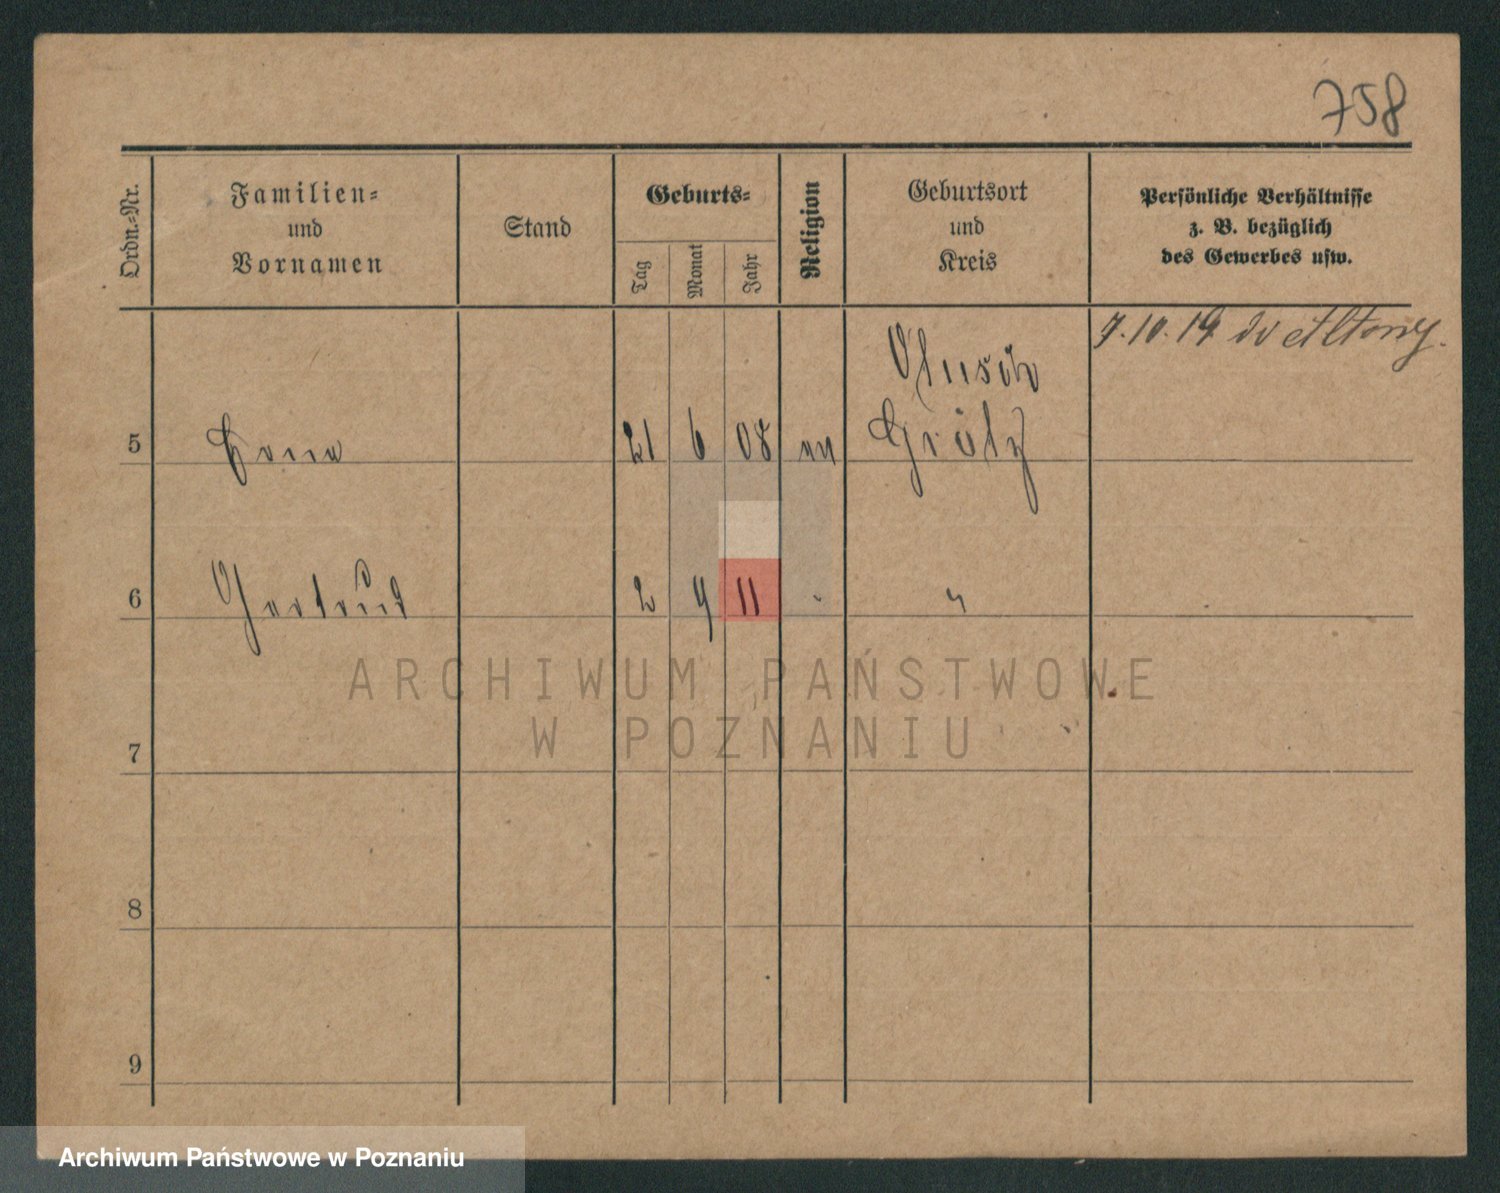 758
Ordn.-Nr.
Familien-
und
Vornamen
Stand
Geburts-
Tag
Monat
Jahr
Religion
Geburtsort
und
Kreis
Persönliche Verhältnisse
z. B. bezüglich
des Gewerbes usw.
7.10.19
5
21 6 08
Grätz
6 Gertrud 2 9 11 "
ARCHIWUM PAŃSTWOWE
W POZNANIU
7
8
9
Archiwum Państwowe w Poznaniu